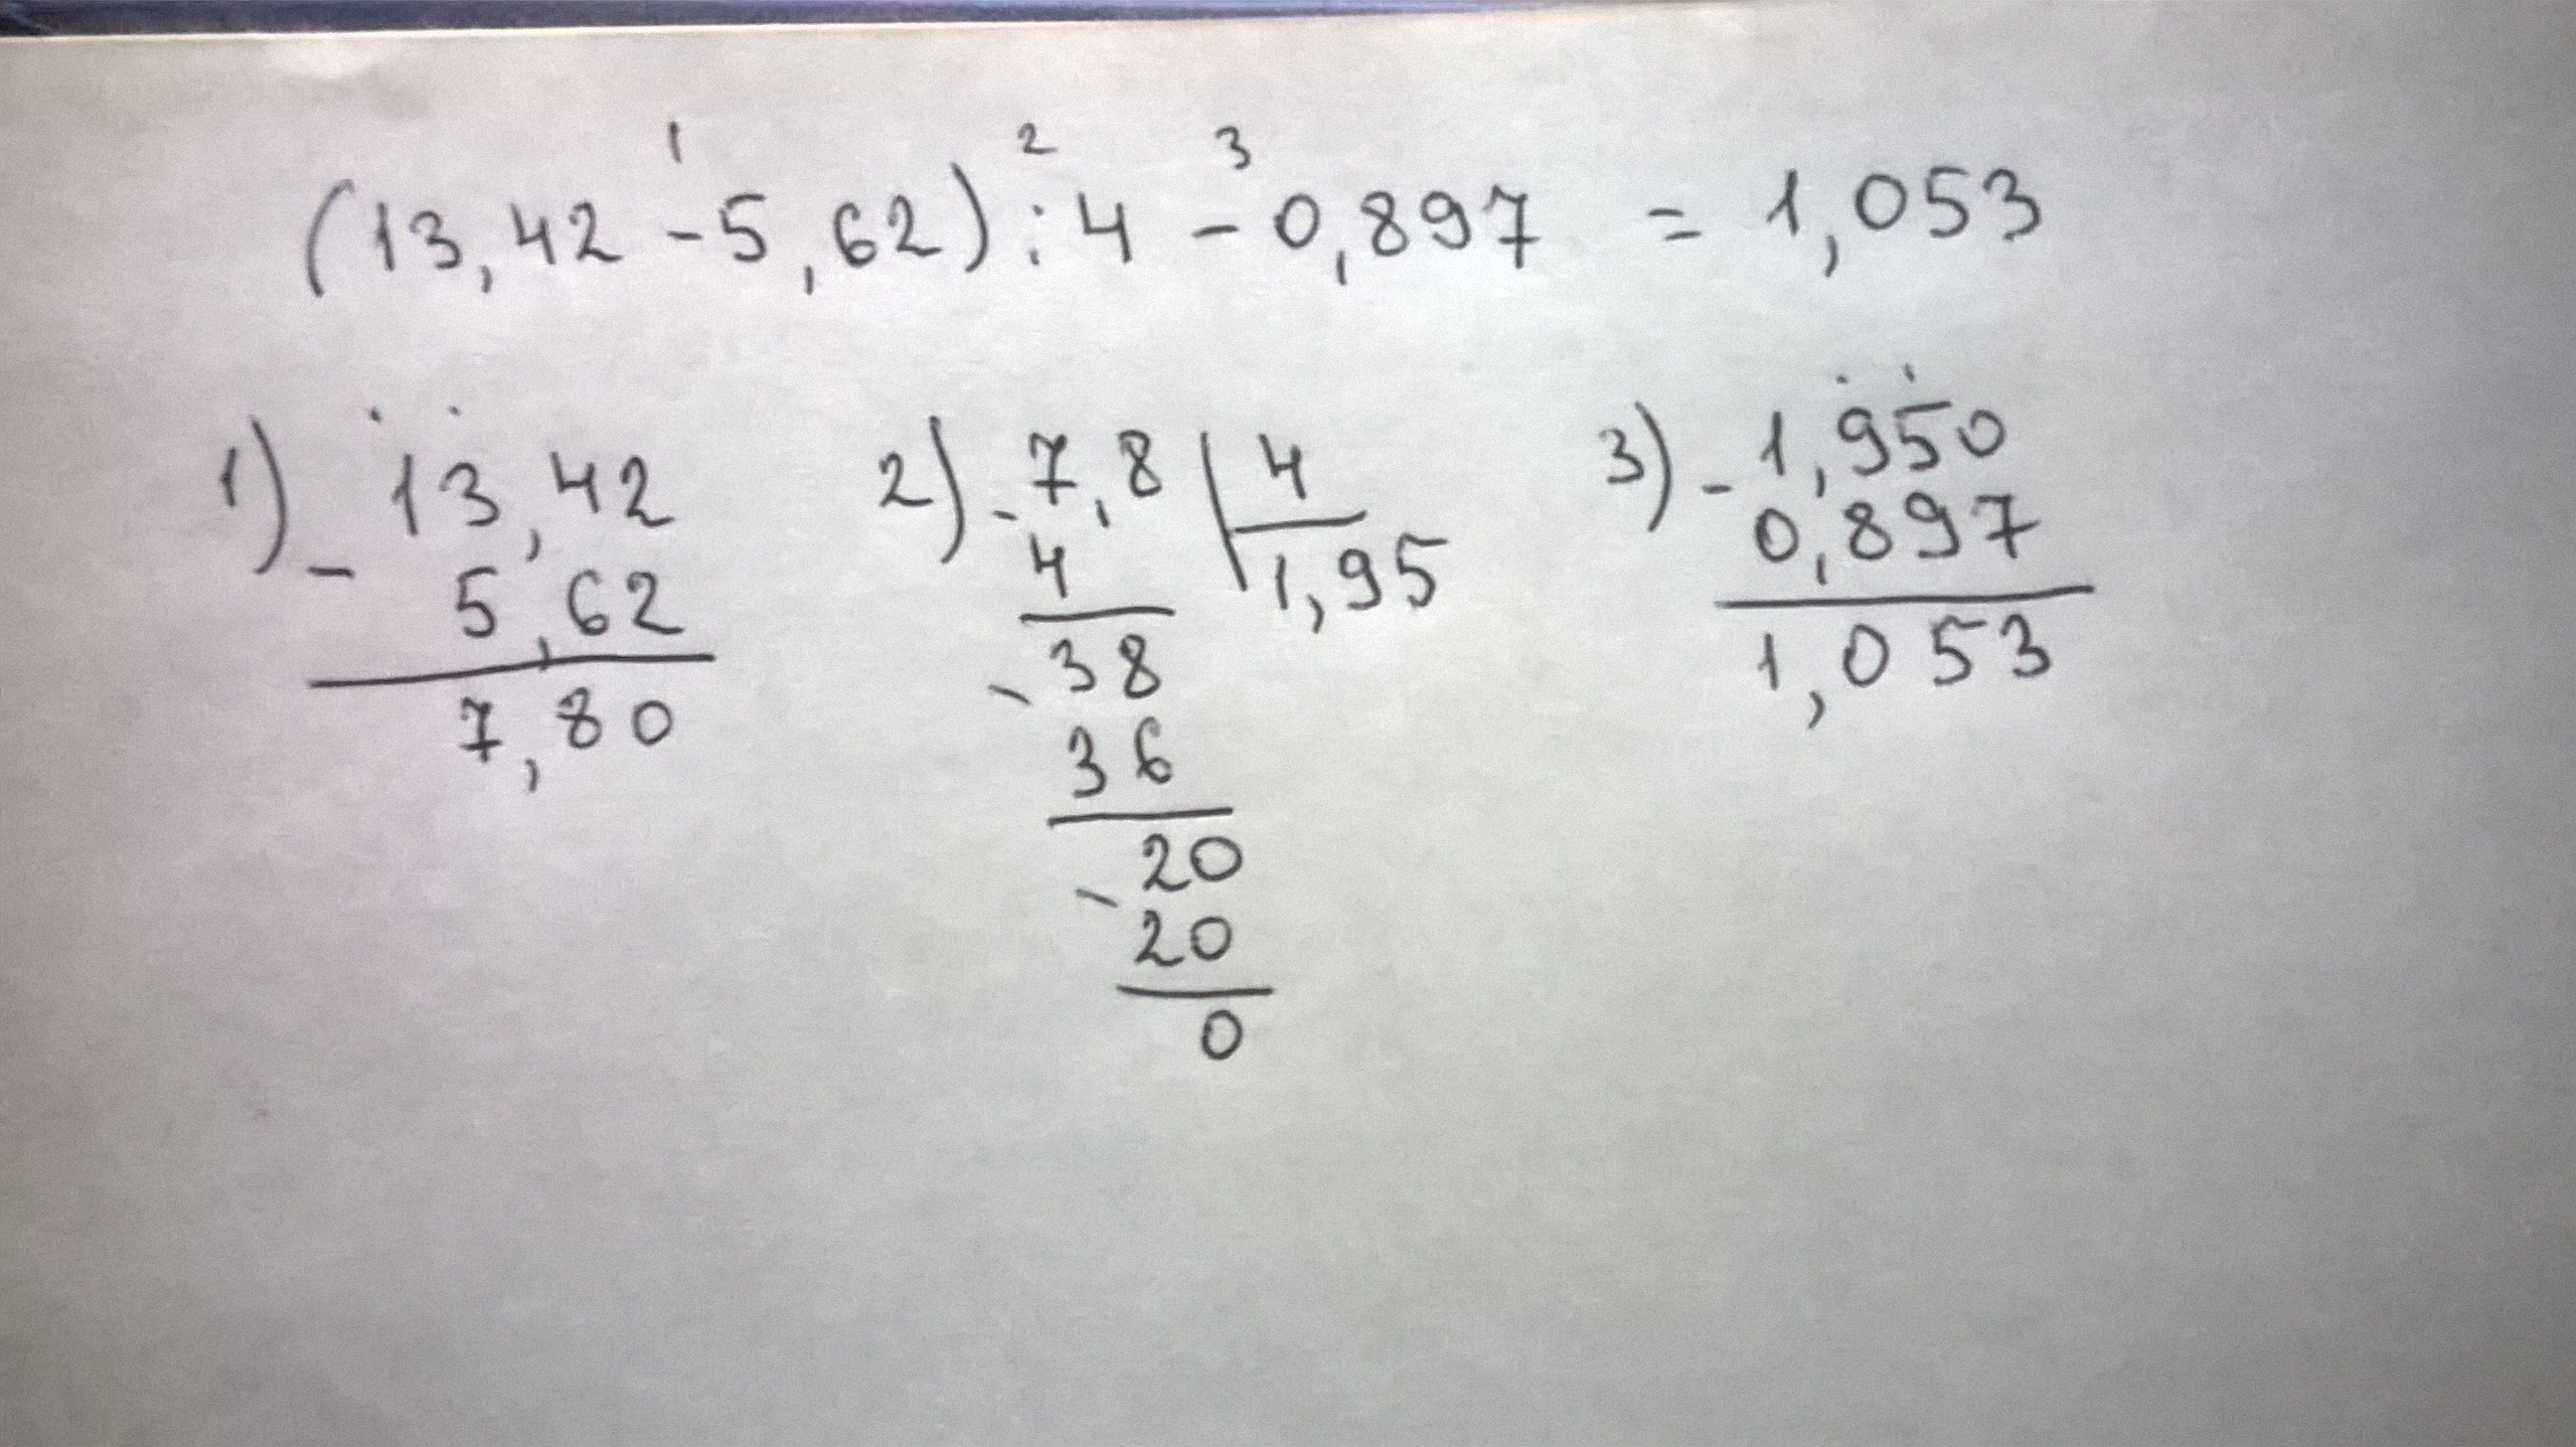 1 2 3
(13,42 - 5,62) : 4 - 0,897 = 1,053
1) - 13,42
5,62
7,80
2) - 7,8 | 4
4 1,95
- 38
36
- 20
20
0
3) - 1,950
0,897
1,053